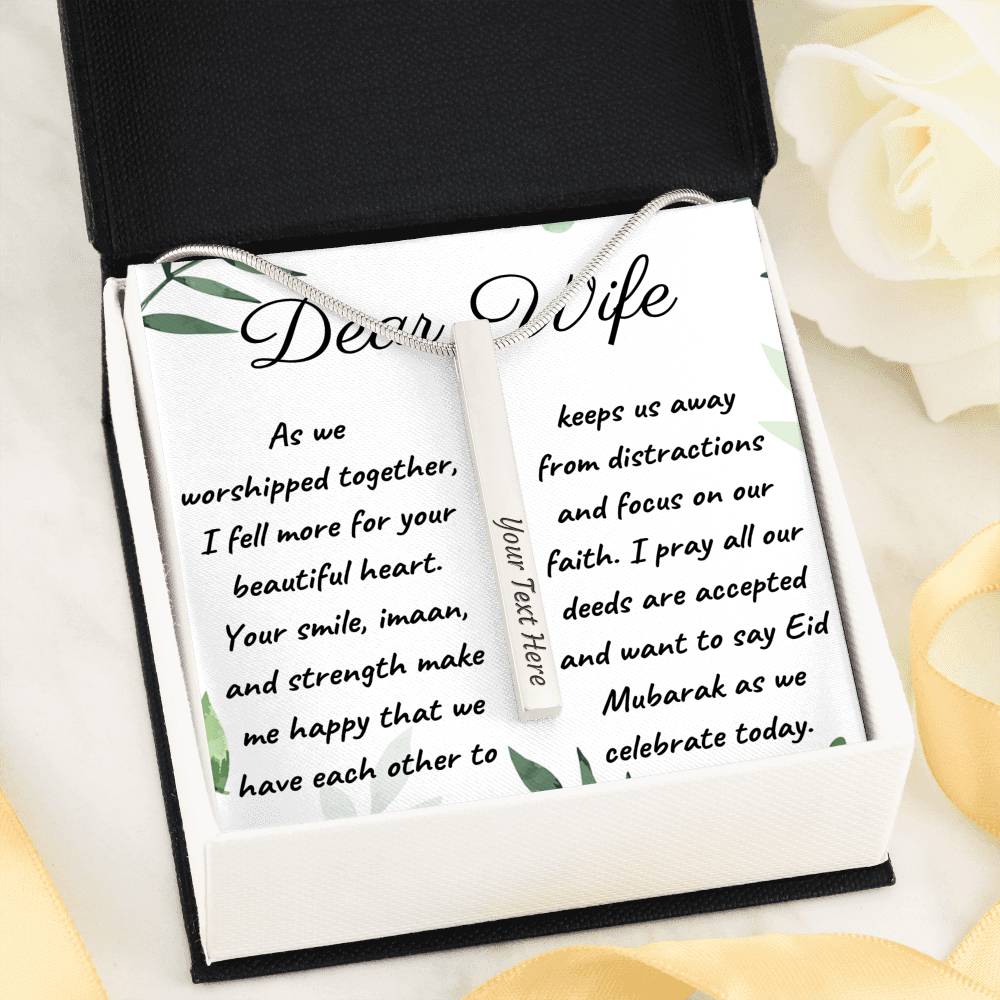 Dear Wife
As we
worshipped together,
I fell more for your
beautiful heart.
Your smile, imaan,
and strength make
me happy that we
have each other to
keeps us away
from distractions
and focus on our
faith. I pray all our
deeds are accepted
and want to say Eid
Mubarak as we
celebrate today.
Your Text Here